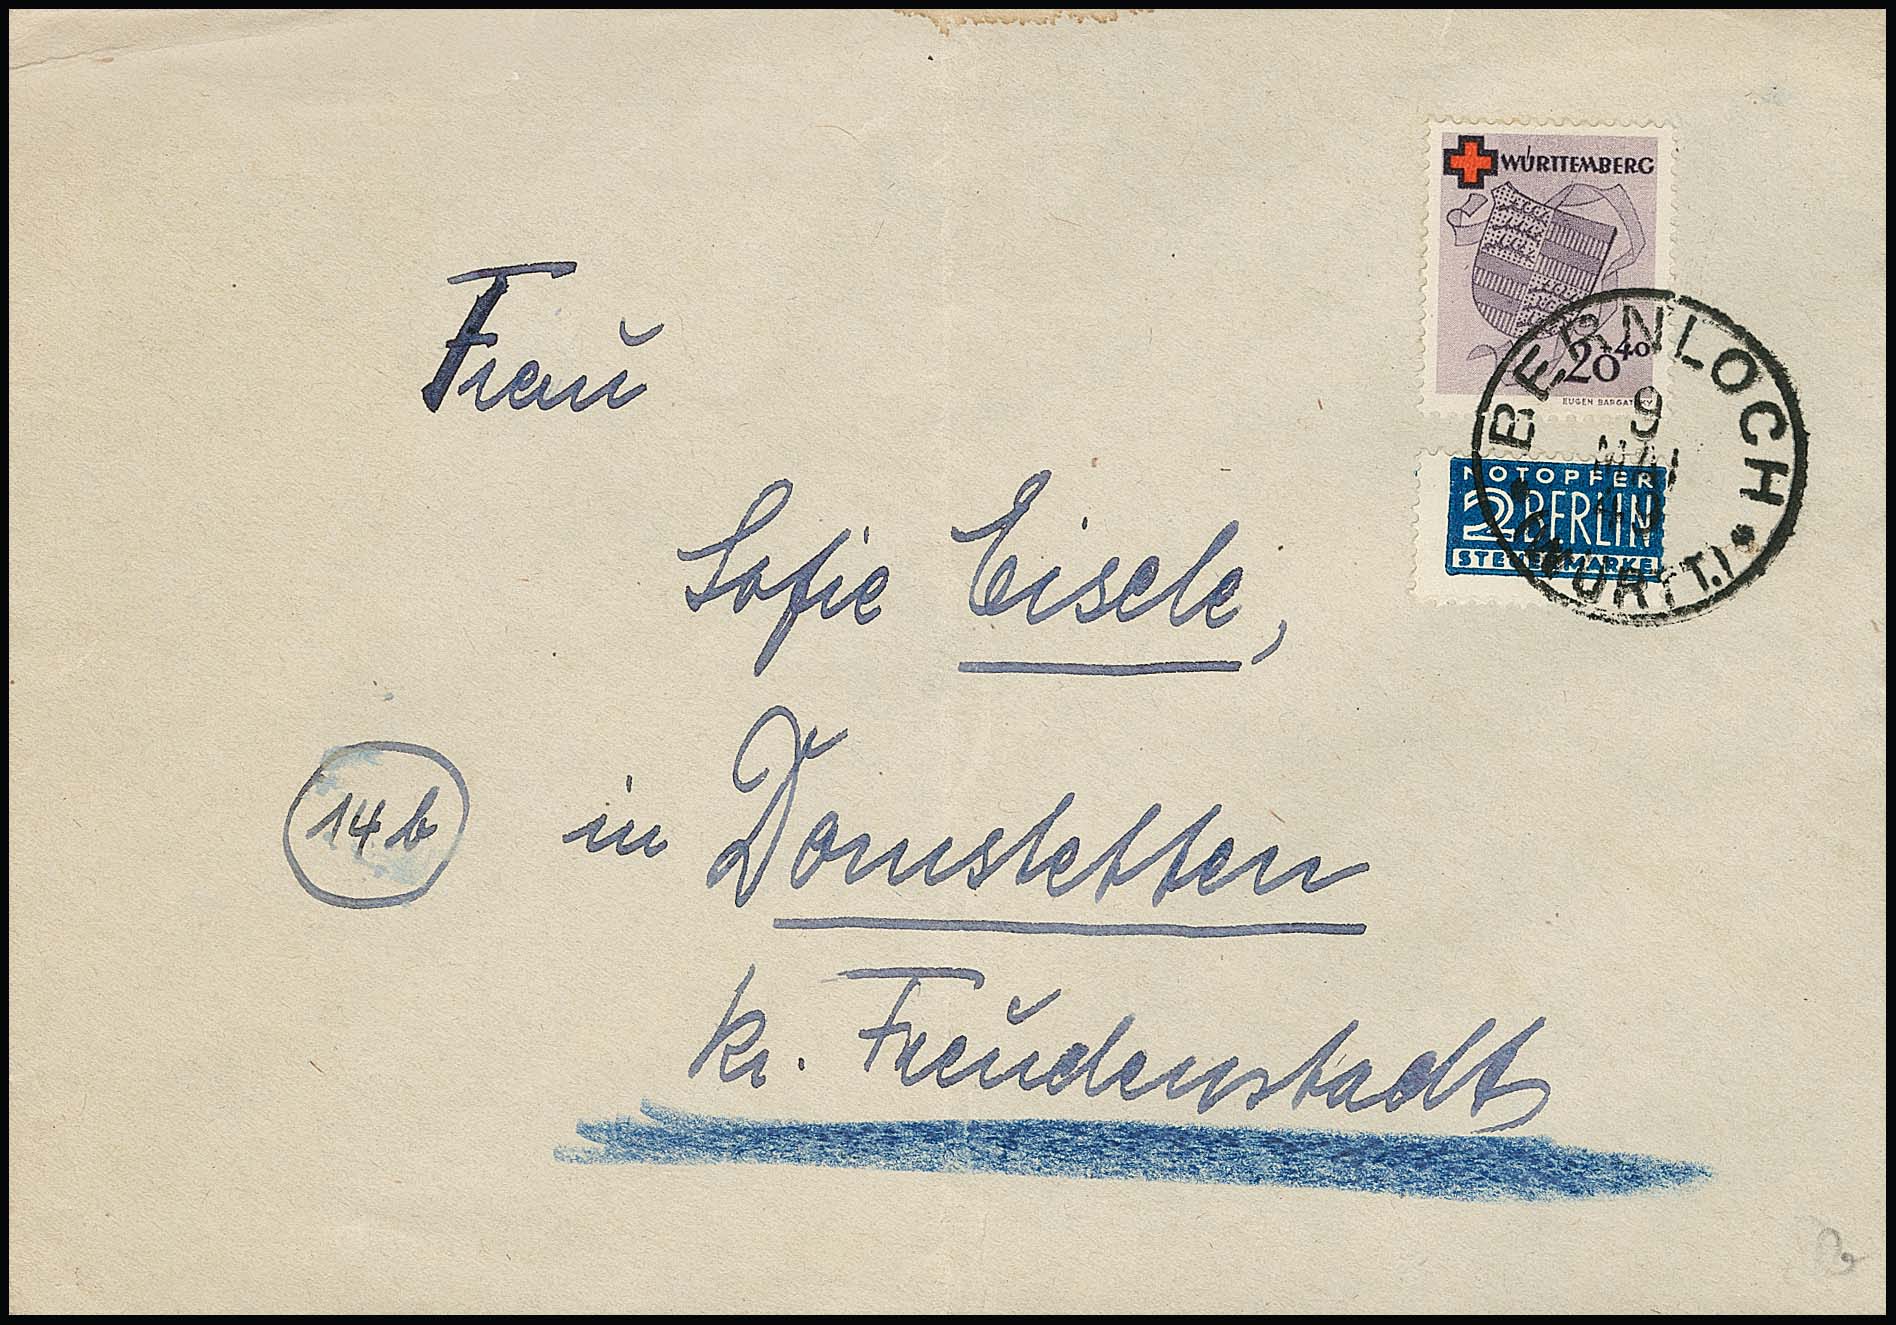 WÜRTTEMBERG
20+40
EUGEN BARGATZKY
BERNLOCH
9
MAI
49
(WÜRTT.)
NOTOPFER
2 BERLIN
STEUERMARKE
Frau
Sofie Eisele,
14b
in Dornstetten
Kr. Freudenstadt